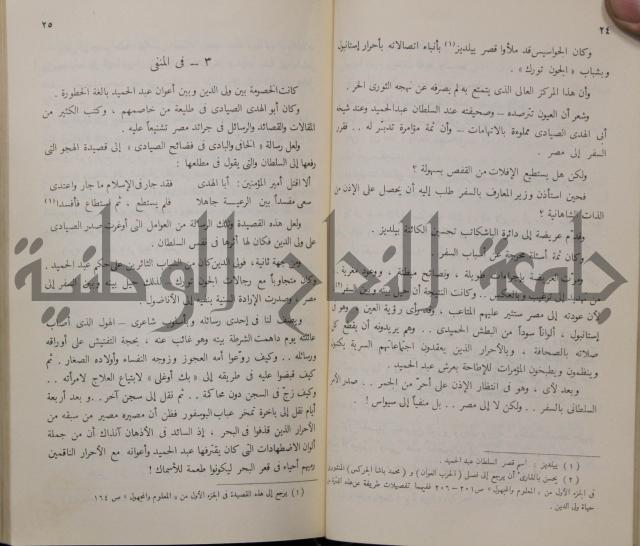 ٢٤
وكان الجواسيس قد ملأوا قصر ييلديز (١) بأنباء اتصالاته بأحرار إستانبول
وبشباب « الجون تورك » .
وأن هذا المركز العالى الذى يتمتع به لم يصرفه عن نهجه الثورى الحر .
وشعر أن العيون تترصده – وصحيفته عند السلطان عبد الحميد وعند شيخه
أبى الهدى الصيادى مملوءة بالاتهامات – وأن ثمة مؤامرة تدبّر له .. فقرر
السفر إلى مصر .
ولكن هل يستطيع الإفلات من القفص بسهولة ؟
فحين استأذن وزير المعارف بالسفر طلب إليه أن يحصل على الإذن من
الذات الشاهانية ؟
وقدّم عريضة إلى دائرة الباشكاتب تحسين الكائنة بييلديز .
وكان ثمة أسئلة عن أسباب السفر
ومرت العريضة طويلة ، ونصائح ، ووعود مغرية .
من تهديد إلى ترغيب وبالعكس .. وكانت النتيجة أن حيل بينه وبين السفر
لأن عودته إلى مصر ستثير عليهم المتاعب ، وقد رأى رؤية العين وهو فى
إستانبول ، ألواناً سوداً من البطش الحميدى .. وهم يريدونه أن يقطع كل
صلاته بالصحافة ، وبالأحرار الذين يعقدون اجتماعاتهم السرية
وينظمون ويطبخون المؤامرات للإطاحة بعرش عبد الحميد .
وبعد لأى ، وهو فى انتظار الإذن على أحرّ من الجمر .. صدر الأمر
السلطانى بالسفر .. ولكن لا إلى مصر .. بل منفياً إلى سيواس !
(١) ييلديز : اسم قصر السلطان عبد الحميد .
(٢) يحسن بالقارئ أن يرجع إلى فصل ( الحزب العوان ) و ( محمد باشا الجركس )
فى الجزء الأول من « المعلوم والمجهول » ص ٢٠١–٢٠٦ ففيهما تفصيلات طريفة عن هذه الفترة من
حياة ولى الدين .
٢٥
٣ – فى المنفى
كانت الخصومة بين ولى الدين وبين أعوان عبد الحميد بالغة الخطورة .
وكان أبو الهدى الصيادى فى طليعة من خاصمهم ، وكتب الكثير من
المقالات والقصائد والرسائل فى جرائد مصر تشنيعاً عليه .
ولعل رسالة « الخافى والبادى فى فضائح الصيادى » إلى قصيدة الهجو التى
رفعها إلى السلطان والتى يقول فى مطلعها :
ألا اقتل أمير المؤمنين : أبا الهدى فقد جار فى الإسلام ما جار واعتدى
سعى مفسداً بين الرعية جاهلا فلم يستطع ، ثم استطاع فأفسدا (١)
ولعل هذه القصيدة وتلك الرسالة من العوامل التى أوغرت صدر الصيادى
على ولى الدين فكان لها أثرها فى نفس السلطان .
ومن جهة ثانية ، فولى الدين كان من الشباب الثائرين على حكم عبد الحميد .
وكان متجاوباً مع رجالات الجون تورك لذلك حيل بينه وبين السفر إلى
مصر ، وصدرت الإرادة السنية بنفيه إلى الأناضول !
ويصف لنا فى إحدى رسائله وبأسلوب شاعرى – الهول الذى أصاب
عائلته يوم داهمت الشرطة بيته وهو غائب عنه ، بحجة التفتيش على أوراقه
ورسائله .. وكيف روّعوا أمه العجوز وزوجه النفساء وأولاده الصغار . ثم
كيف قبضوا عليه فى طريقه إلى « بك أوغلى » لابتياع العلاج لامرأته ..
وكيف زجّ فى السجن دون محاكمة .. ثم نقل إلى سجن آخر .. و بعد أربعة
أيام نقل إلى باخرة تمخر عباب البوسفور فظن أن مصيره مصير من سبقه من
الأحرار الذين قذفوا فى البحر ، إذ السائد فى الأذهان آنذاك أن من جملة
ألوان الاضطهادات التى كان يقترفها عبد الحميد وأعوانه مع الأحرار الناقمين
رميهم أحياء فى قعر البحر ليكونوا طعمة للأسماك !
(١) يرجع إلى هذه القصيدة فى الجزء الأول من « المعلوم والمجهول » ص ١٦٤
جامعة النجاح الوطنية